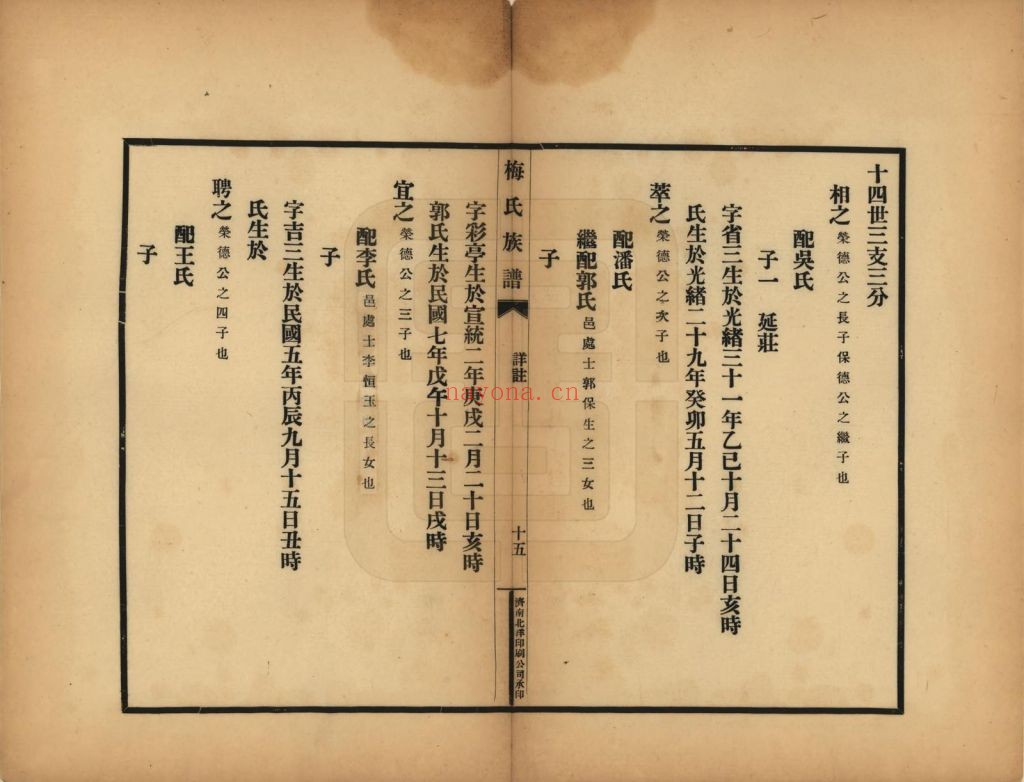 十四世三支三分
相之 榮德公之長子保德公之繼子也
配吳氏
子一 延莊
字省三生於光緒三十一年乙巳十月二十四日亥時
氏生於光緒二十九年癸卯五月十二日子時
萃之 榮德公之次子也
配潘氏
繼配郭氏 邑處士郭保生之三女也
子
梅氏族譜 詳註 十五 濟南北洋印刷公司承印
字彩亭生於宣統二年庚戌二月二十日亥時
郭氏生於民國七年戊午十月十三日戌時
宜之 榮德公之三子也
配李氏 邑處士李恒玉之長女也
子
字吉三生於民國五年丙辰九月十五日丑時
氏生於
聘之 榮德公之四子也
配王氏
子
nayona.cn